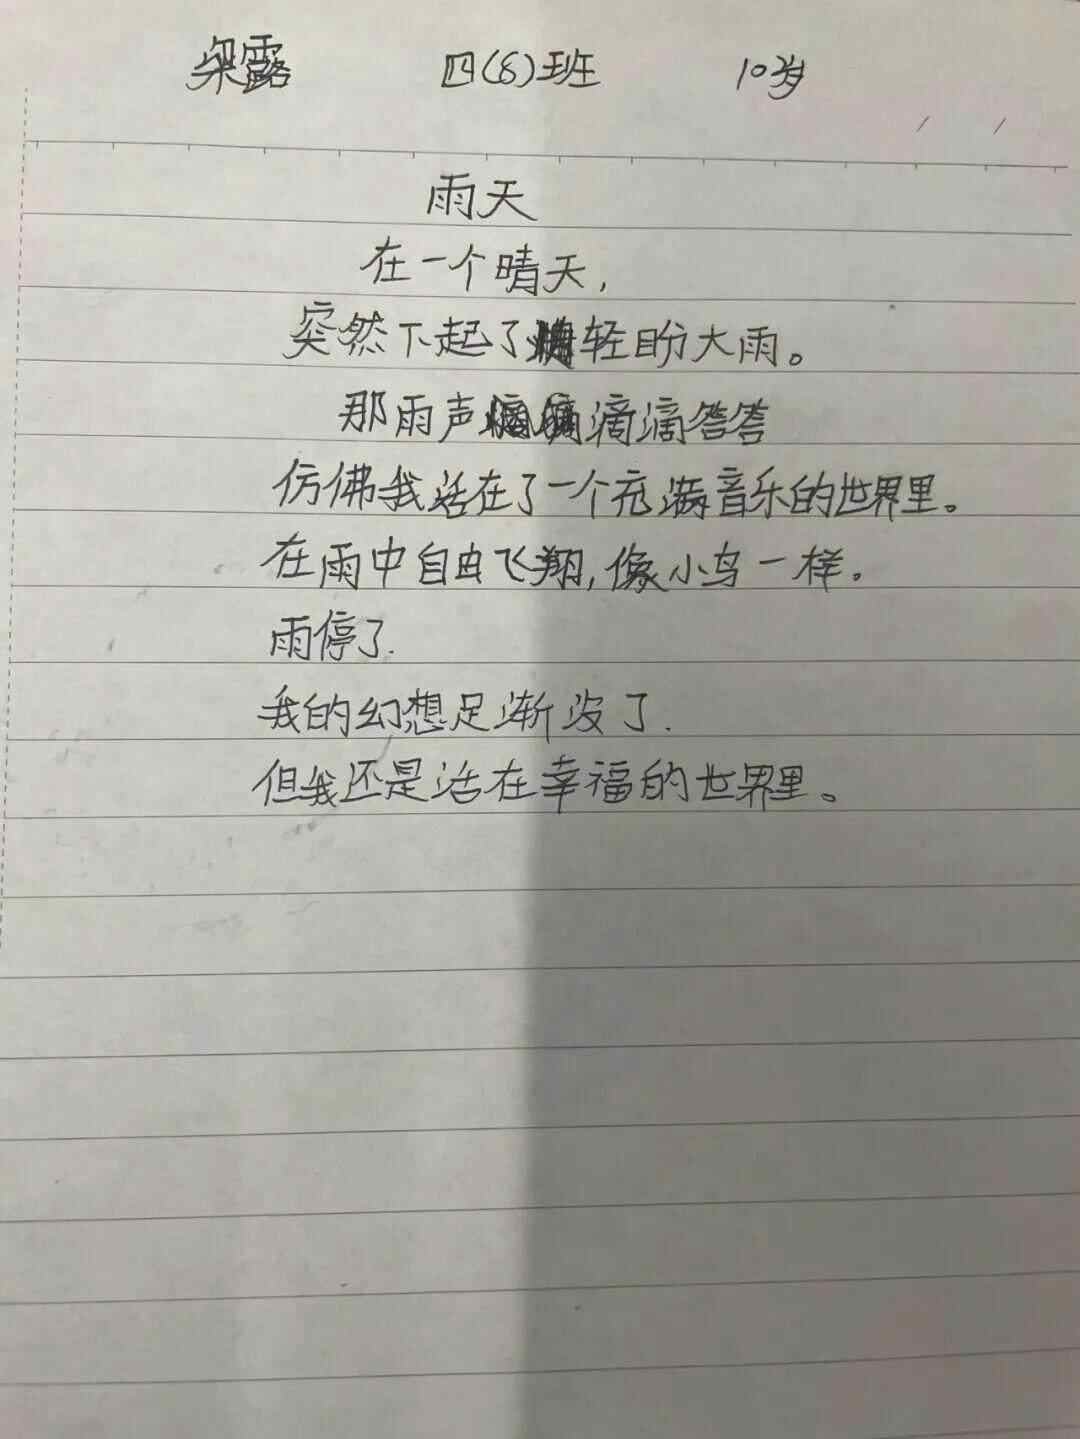 露 四(8)班 10岁
雨天
在一个晴天,
突然下起了轻盼大雨。
那雨声滴滴答答
仿佛我活在了一个充满音乐的世界里。
在雨中自由飞翔,像小鸟一样。
雨停了.
我的幻想足渐没了.
但我还是活在幸福的世界里。